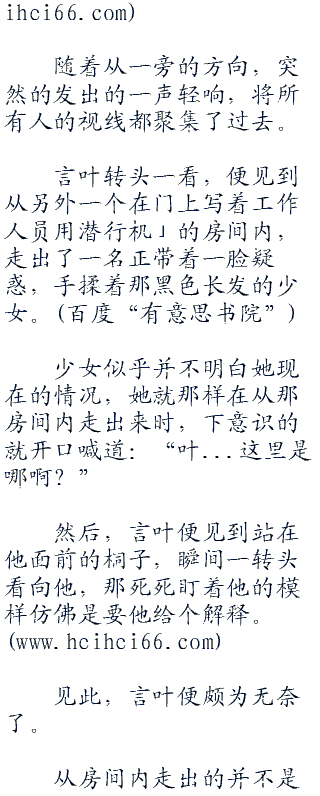 ihci66.com)
随着从一旁的方向，突
然的发出的一声轻响，将所
有人的视线都聚集了过去。
言叶转头一看，便见到
从另外一个在门上写着工作
人员用潜行机」的房间内，
走出了一名正带着一脸疑
惑，手揉着那黑色长发的少
女。(百度“有意思书院”)
少女似乎并不明白她现
在的情况，她就那样在从那
房间内走出来时，下意识的
就开口喊道：“叶...这里是
哪啊？”
然后，言叶便见到站在
他面前的桐子，瞬间一转头
看向他，那死死盯着他的模
样仿佛是要他给个解释。
(www.hcihci66.com)
见此，言叶便颇为无奈
了。
从房间内走出的并不是